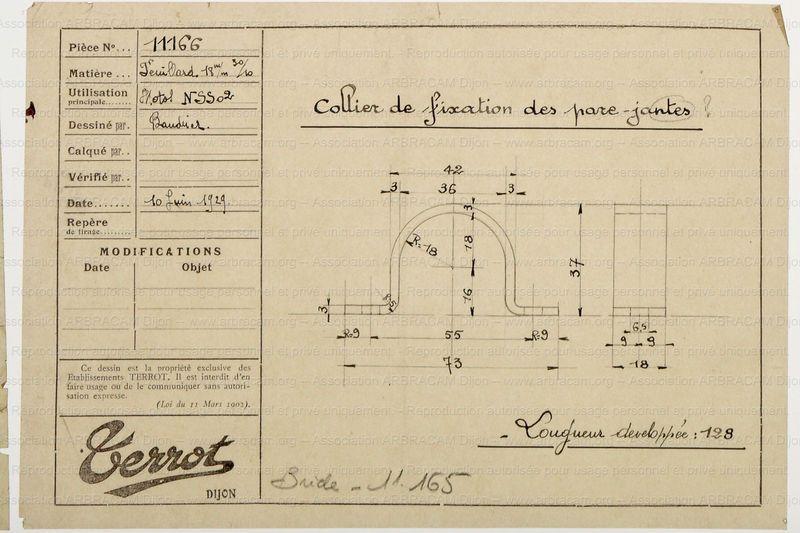 Pièce Nº... 11166
Matière ... Feuillard 18 m/m 30/10
Utilisation principale....... Moto NSSO2
Dessiné par.
Calqué par..
Vérifié par..
Date....... 10 Juin 1929.
Repère
de tirage.........
MODIFICATIONS
Date Objet
Ce dessin est la propriété exclusive des
Etablissements TERROT. Il est interdit d'en
faire usage ou de le communiquer sans autori-
sation expresse.
(Loi du 11 Mars 1902).
Terrot
DIJON
Collier de fixation des pare-jantes ?
42
3 36 3
3
R=18
18
37
16
3
R=9 55 R=9
73
6,5
9 9
18
- Longueur developpée : 128
Bride - 11.165
Association ARBRACAM Dijon – www.arbracam.org – Reproduction autorisée pour usage personnel et privé uniquement.